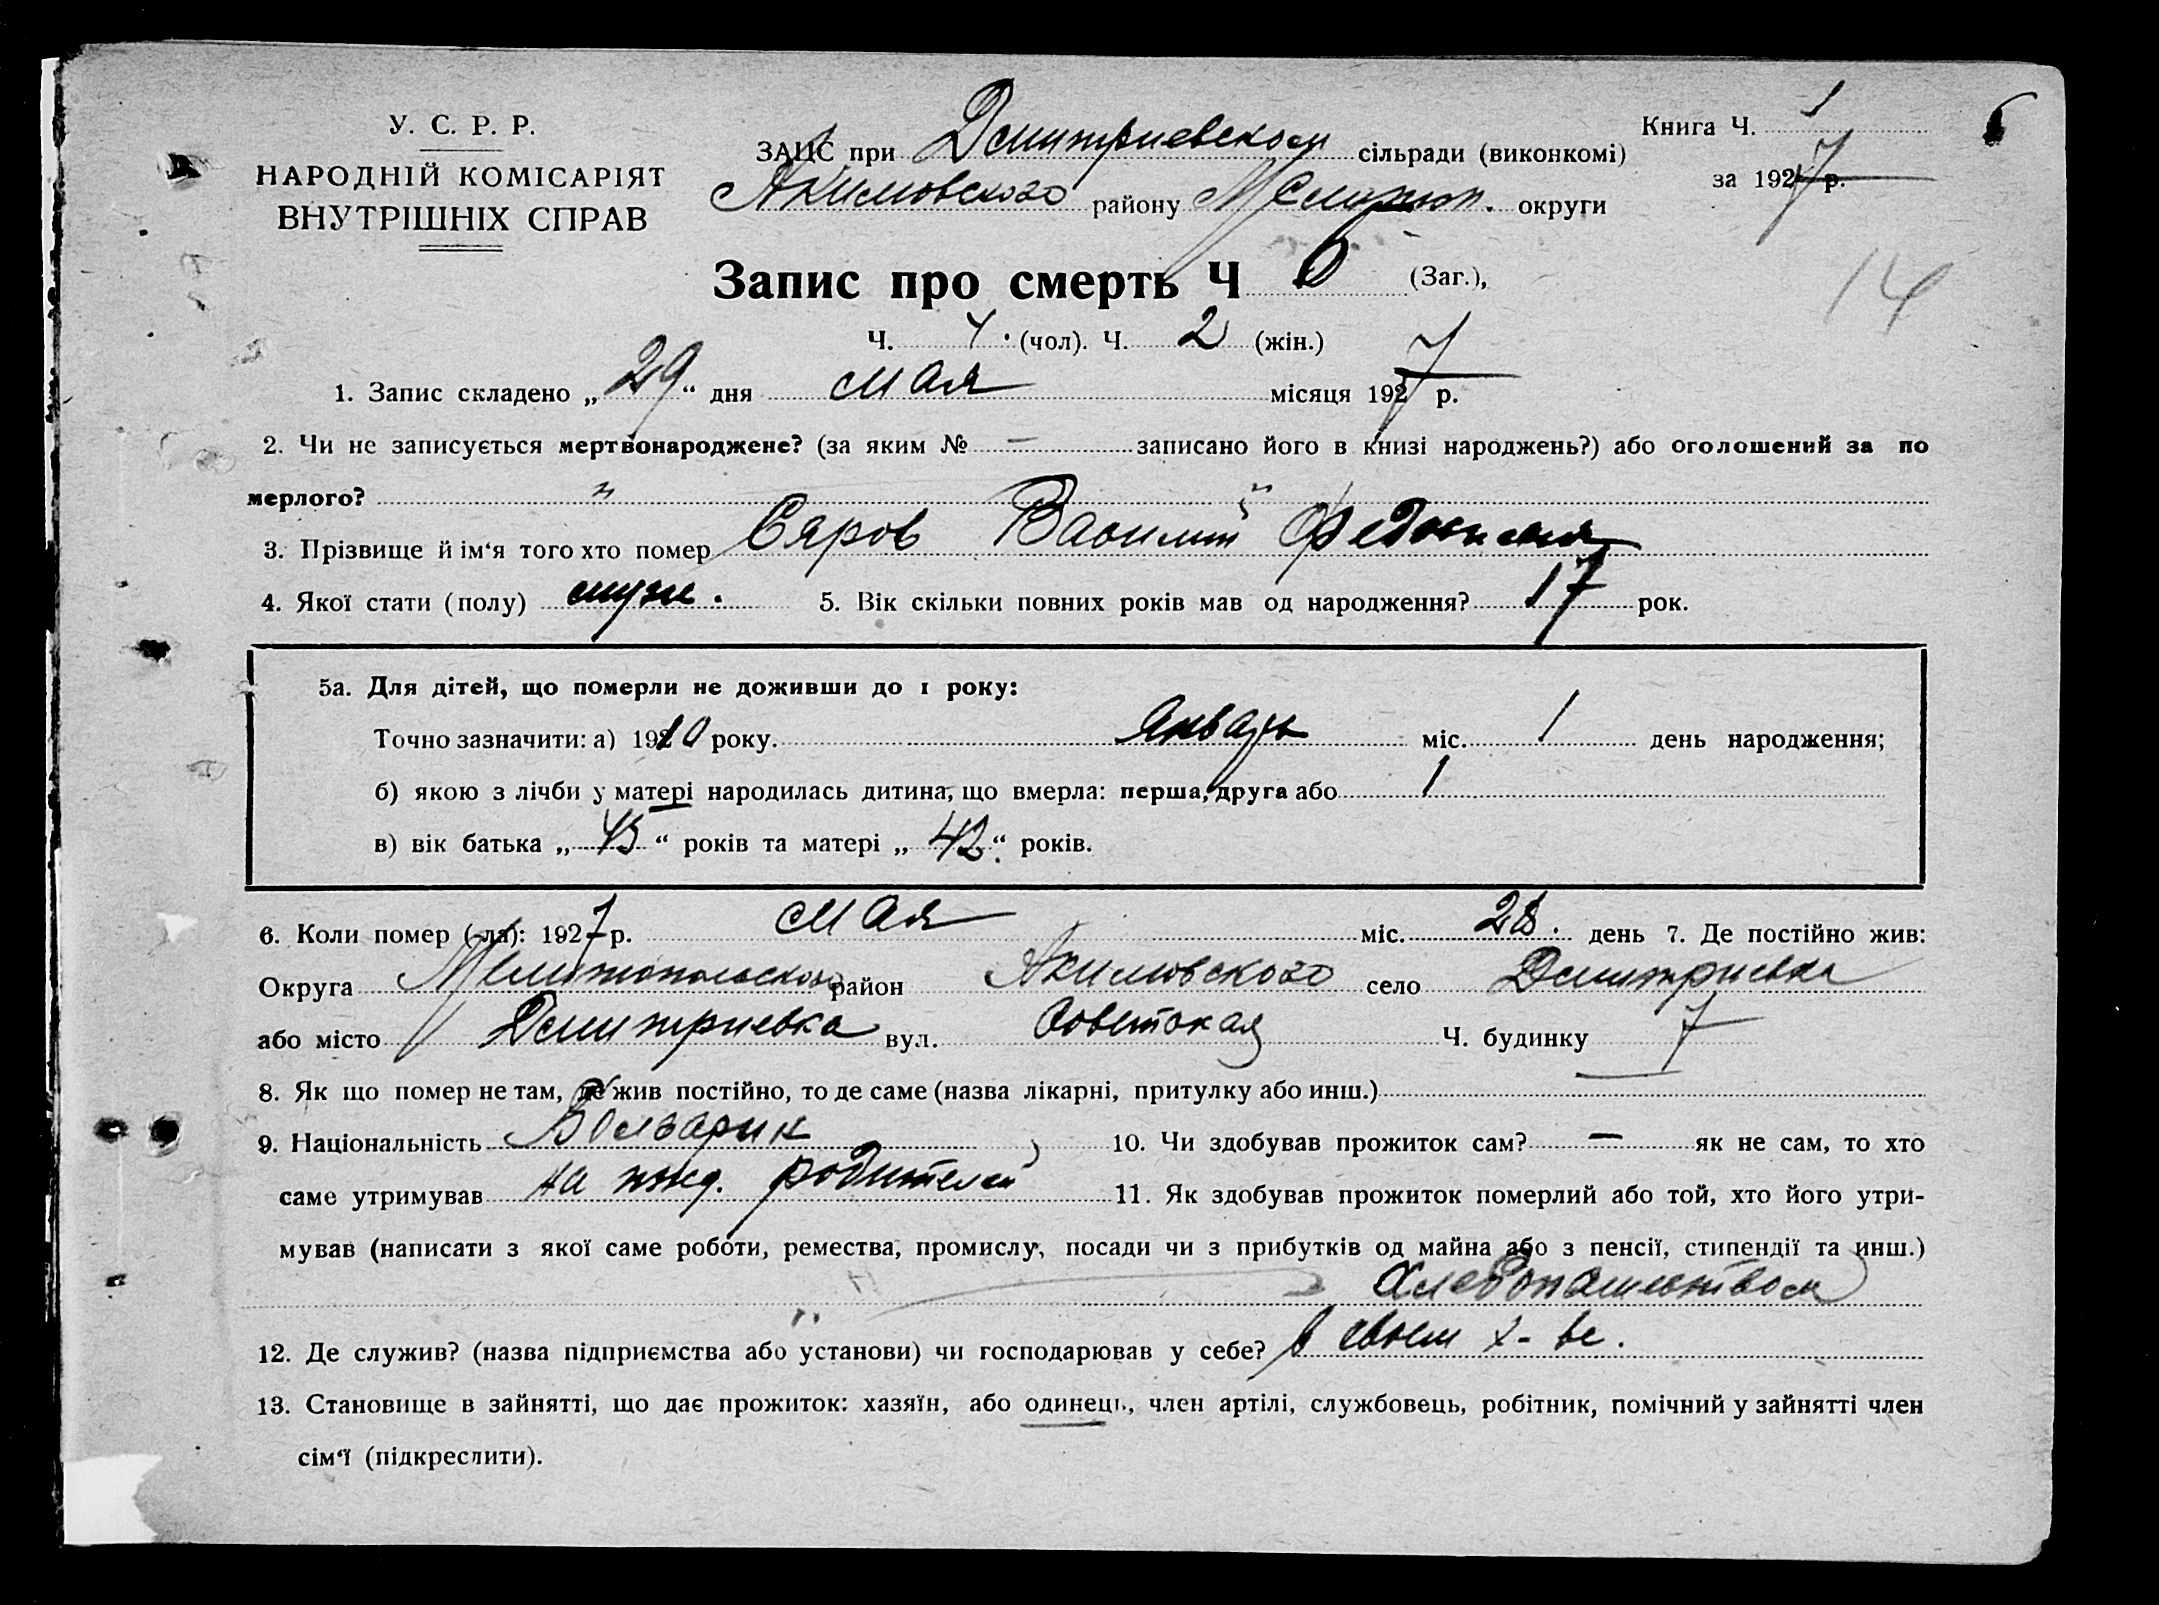 У. С. Р. Р.
НАРОДНІЙ КОМІСАРІЯТ
ВНУТРІШНІХ СПРАВ
Книга Ч. 1
за 1927 р.
6
14
ЗАЦС при Дмитриевском сільради (виконкомі)
Акимовского району Мелитоп. округи
Запис про смерть Ч 6 (Заг.),
Ч. 4. (чол). Ч. 2 (жін.)
1. Запис складено „29“ дня мая місяця 1927 р.
2. Чи не записується мертвонароджене? (за яким № — записано його в книзі народжень?) або оголошений за по
мерлого? " "
3. Прізвище й ім‘я того хто помер Сяров Василий
4. Якої стати (полу) муж. 5. Вік скільки повних років мав од народження? 17 рок.
5а. Для дітей, що померли не доживши до 1 року:
Точно зазначити: а) 1910 року. Январь міс. 1 день народження;
б) якою з лічби у матері народилась дитина, що вмерла: перша, друга або 1
в) вік батька „45“ років та матері „42“ років.
6. Коли помер (-ла): 1927 р. мая міс. 28. день 7. Де постійно жив:
Округа Мелитопольского район Акимовского село Дмитриевка
або місто Дмитриевка вул. Советская Ч. будинку 7
8. Як що помер не там, де жив постійно, то де саме (назва лікарні, притулку або инш.)
9. Національність Болгарин 10. Чи здобував прожиток сам? — як не сам, то хто
саме утримував на ижд. родителей 11. Як здобував прожиток померлий або той, хто його утри-
мував (написати з якої саме роботи, ремества, промислу, посади чи з прибутків од майна або з пенсії, стипендії та инш.)
Хлебопашеством
12. Де служив? (назва підприємства або установи) чи господарював у себе? в своем х-ве.
13. Становище в зайнятті, що дає прожиток: хазяїн, або одинець, член артілі, службовець, робітник, помічний у зайнятті член
сім‘ї (підкреслити).